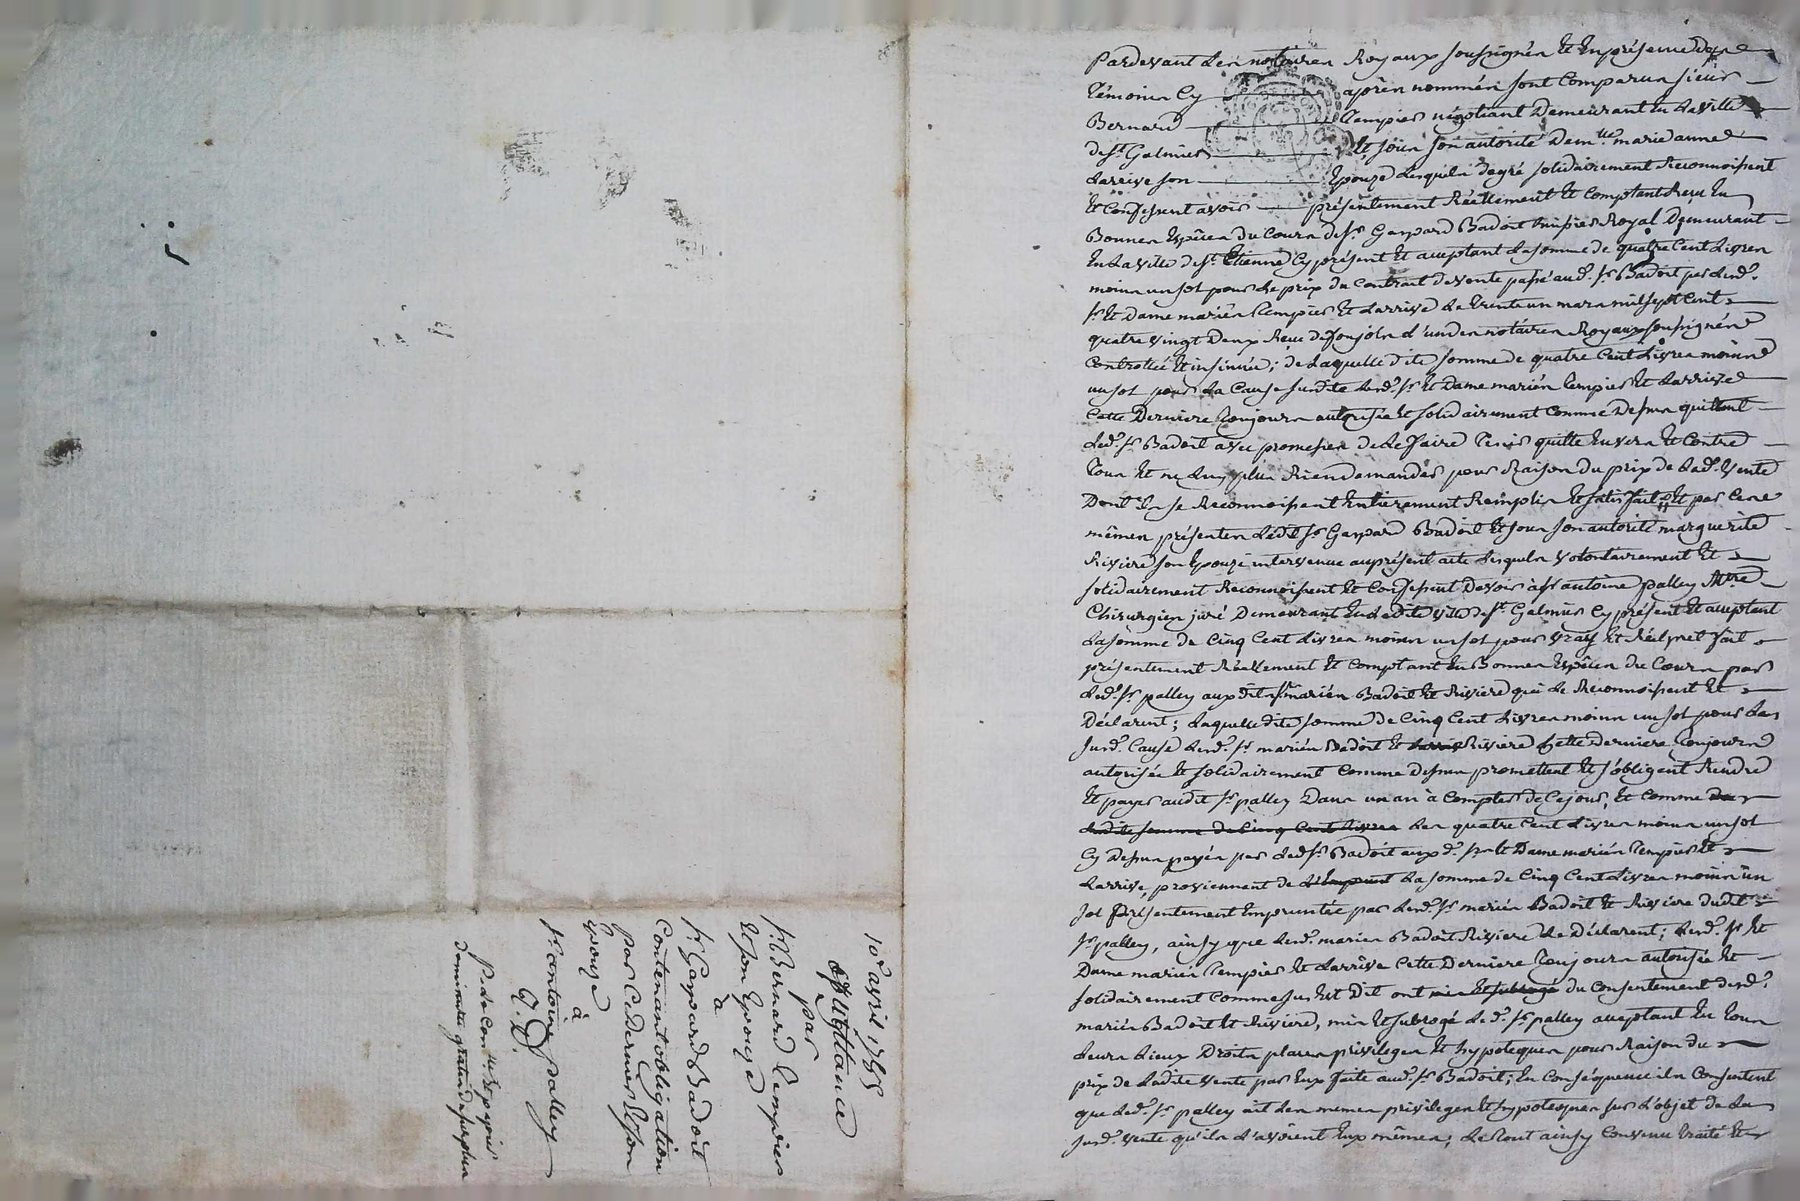 10e avril 1785
Quittance
par
Sr. Bernard Tempier
et son Epouze
à
Sr. Gaspard Badoit
Contenant obligation
par Ce dernier et son
Epouze
à
Sr. antoine palley
Pardevant Les notaires Royaux soussignés Et En présence des
témoins Cy après nommés sont Comparus sieur
Bernard Tempier négotiant Demeurant En La Ville
de St. Galmier Et sous son autorité Demlle. marieanne
Larrive son Epouze Lesquels de gré solidairement Reconnoissent
Et Confessent avoir présentement Réellement Et Comptant Reçu En
Bonnes Espèces du Cours de Sr. Gaspard Badoit huissier Royal Demeurant
En La Ville de St. Etienne Cy présent Et acceptant La somme de quatre Cent Livres
moins un sol pour Le prix du Contrat de Vente passé aud. Sr. Badoit par Lesd.
Sr. Et Dame mariés Tempier Et Larrive Le trente un mars mil sept Cent
quatre vingt Deux Reçu deJoujoln d'un des notaires Royaux soussignés
Controllée Et insinué; de Laquelle dite somme de quatre Cent Livres moins
un sol pour La Cause susdite Lesd. Sr. Et Dame mariés Tempier Et Larrive
Cette Derniere toujours autorisée Et solidairement Comme Dessus quittent
Led. Sr. Badoit avec promesses de Le faire tenir quitte Envers Et Contre
tous Et ne Luy plus Rien demander pour Raison du prix de Lad. Vente
Dont ils se Reconnoissent Entierement Remplis Et satisfait; Et par Ces
mêmes présentes Ledit Sr. Gaspard Badoit Et sous son autorité marguerite
Riviere son Epouze intervenue au présent acte Lesquels volontairement Et
solidairement Reconnoissent Et Confessent Devoir à Sr. antoine palley Mtre.
Chirurgien juré Demeurant En Ladite Ville de St. Galmier Cy présent Et acceptant
La somme de Cinq Cent Livres moins un sol pour vray Et Réel pret fait
présentement Réellement Et Comptant En Bonnes Espèces du Cours par
Led. Sr. palley auxdits Sr. mariés Badoit Et Riviere qui Le Reconnoissent Et
Déclarent; Laquelle dite somme de Cinq Cent Livres moins un sol pour La
susd. Cause Lesd. Sr. mariés Badoit Et Riviere Cette Derniere toujours
autorisée Et solidairement Comme dessus promettent Et s'obligent Rendre
Et payer audit Sr. palley Dans un an à Compter de Ce jour, Et Comme
Ladite somme de Cinq Cent Livres Les quatre Cent Livres moins un sol
Cy Dessus payés par Led. Sr. Badoit auxd. Sr. Et Dame mariés Tempier Et
Larrive, proviennent de L'Emprunt La somme de Cinq Cent Livres moins un
sol présentement Empruntée par Lesd. Sr. mariés Badoit Et Riviere dudit
Sr. palley, ainsy que Lesd. mariés Badoit Riviere Le Déclarent; Lesd. Sr. Et
Dame mariés Tempier Et Larrive Cette Derniere toujours autorisée Et
solidairement Comme sus Est Dit ont mis Et subrogé du Consentement desd.
mariés Badoit Et Riviere, mis Et subrogé Led. Sr. palley acceptant En tous
Leurs Lieux Droits places privileges Et hypoteques pour Raison du
prix de Ladite Vente par Eux faite aud. Sr. Badoit; En Conséquence ils Consentent
que Led. Sr. palley ait Les memes privileges Et hypoteques sur L'objet de La
susd. Vente qu'ils L'avoient Eux mêmes; Le tout ainsy Convenu traité Et